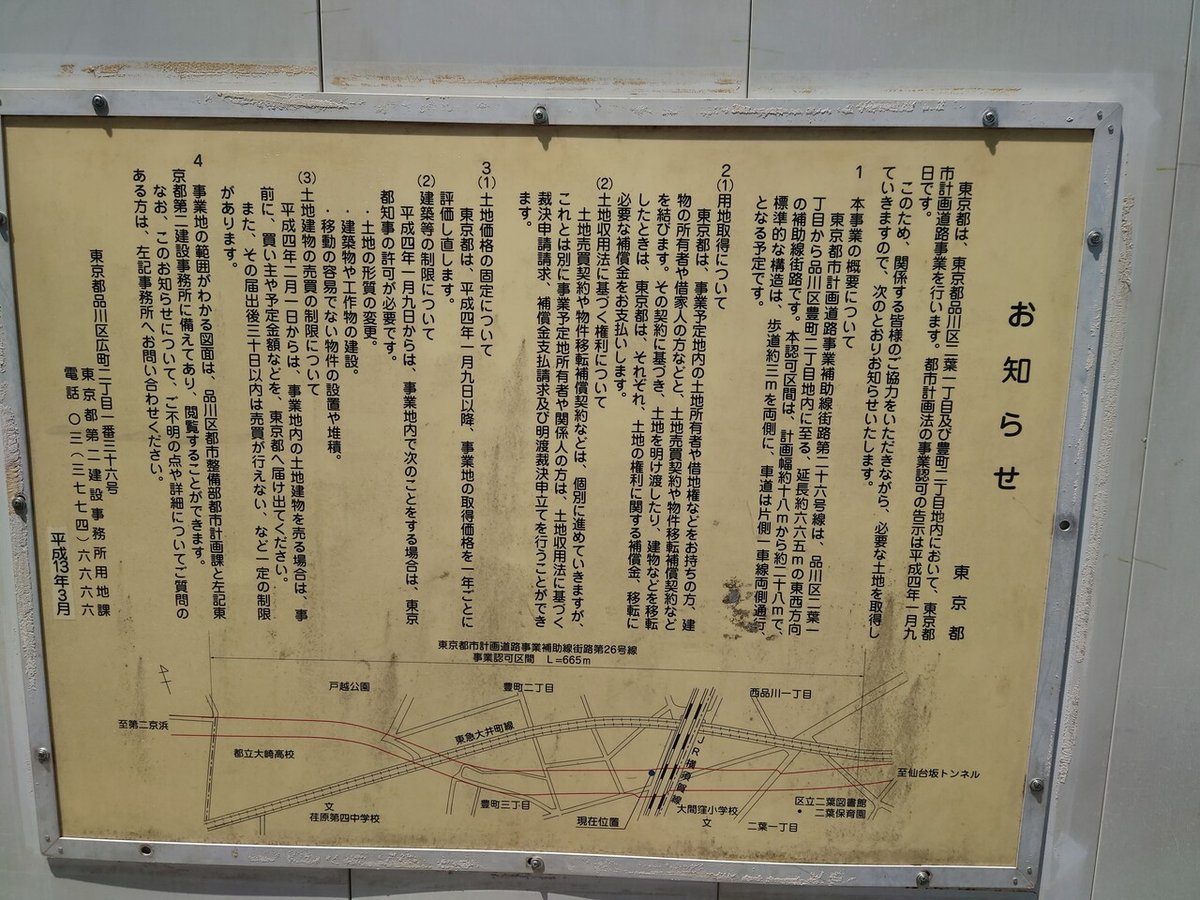 お知らせ
東京都
東京都は、東京都品川区二葉一丁目及び豊町二丁目地内において、東京都
市計画道路事業を行います。都市計画法の事業認可の告示は平成四年一月九
日です。
このため、関係する皆様のご協力をいただきながら、必要な土地を取得し
ていきますので、次のとおりお知らせいたします。
1 本事業の概要について
東京都市計画道路事業補助線街路第二十六号線は、品川区二葉一
丁目から品川区豊町二丁目地内に至る、延長約六六五mの東西方向
の補助線街路です。本認可区間は、計画幅約十八mから約二十八mで、
標準的な構造は、歩道約三mを両側に、車道は片側一車線両側通行、
となる予定です。
2 (1)用地取得について
東京都は、事業予定地内の土地所有者や借地権などをお持ちの方、建
物の所有者や借家人の方などと、土地売買契約や物件移転補償契約など
を結びます。その契約に基づき、土地を明け渡したり、建物などを移転
したときは、東京都は、それぞれ、土地の権利に関する補償金、移転に
必要な補償金をお支払いします。
(2)土地収用法に基づく権利について
土地売買契約や物件移転補償契約などは、個別に進めていきますが、
これとは別に事業予定地所有者や関係人の方は、土地収用法に基づく
裁決申請請求、補償金支払請求及び明渡裁決申立てを行うことができ
ます。
3 (1)土地価格の固定について
東京都は、平成四年一月九日以降、事業地の取得価格を一年ごとに
評価し直します。
(2)建築等の制限について
平成四年一月九日からは、事業地内で次のことをする場合は、東京
都知事の許可が必要です。
・土地の形質の変更。
・建築物や工作物の建設。
・移動の容易でない物件の設置や堆積。
(3)土地建物の売買の制限について
平成四年二月一日からは、事業地内の土地建物を売る場合は、事
前に、買い主や予定金額などを、東京都へ届け出てください。
また、その届出後三十日以内は売買が行えない、など一定の制限
があります。
4 事業地の範囲がわかる図面は、品川区都市整備部都市計画課と左記東
京都第二建設事務所に備えてあり、閲覧することができます。
なお、このお知らせについて、ご不明の点や詳細についてご質問の
ある方は、左記事務所へお問い合わせください。
東京都品川区広町二丁目一番三十六号
東京都第二建設事務所用地課
電話 〇三(三七七四)六六六六
平成13年3月
東京都市計画道路事業補助線街路第26号線
事業認可区間 L=665m
戸越公園
豊町二丁目
西品川一丁目
至第二京浜
都立大崎高校
東急大井町線
JR横須賀線
至仙台坂トンネル
文
荏原第四中学校
豊町三丁目
現在位置
大間窪小学校
文
区立二葉図書館
・ 二葉保育園
二葉一丁目